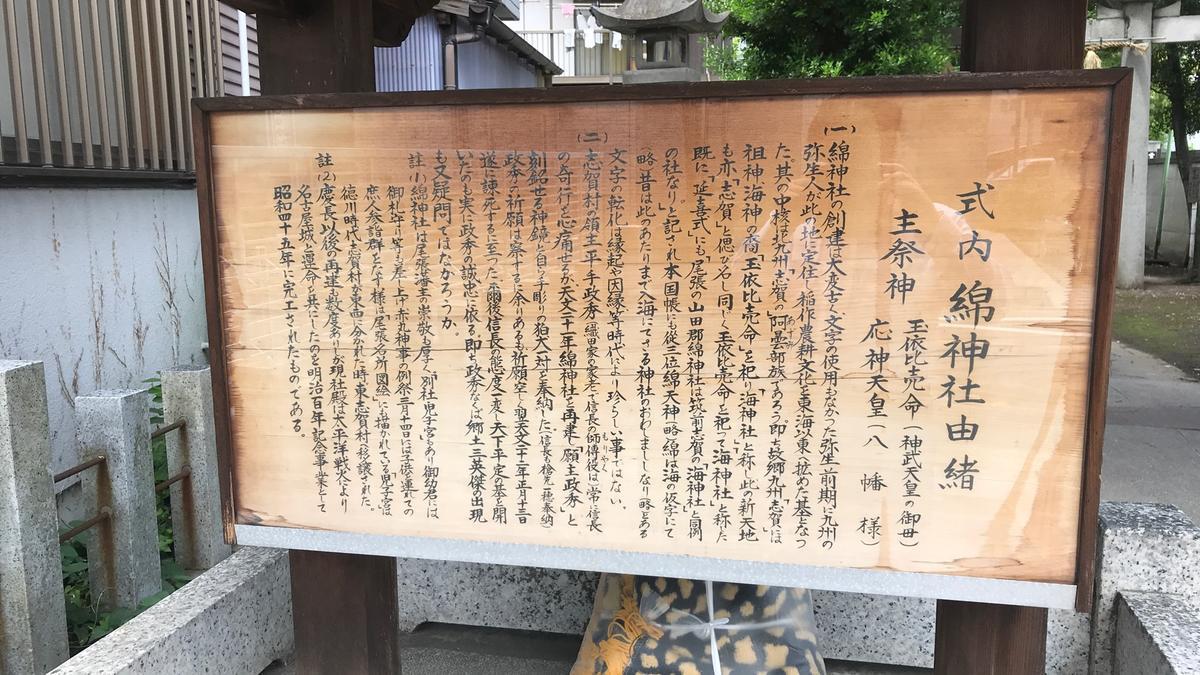 式内 綿神社由緒
主祭神 玉依比売命(神武天皇の御母)
応神天皇(八幡様)
(一)
綿神社の創建は大変古く文字の使用もなかった弥生前期に九州の
弥生人が此の地に定住し稲作農耕文化を東海以東へ拡めた基となっ
た。其の中核は北九州「志賀」の「阿曇部族」であろう。即ち故郷九州「志賀」には
祖神海神の裔「玉依比売命」を祀り「海神社」と称し此の新天地
も亦「志賀」と偲び名し同じく玉依比売命を祀って海神社と称た
既に「延喜式」にも「尾張の山田郡綿神社は筑前志賀の「海神社」と同例
の社なり」と記され本国帳にも従三位綿天神(略)綿は海の仮字にて
(略)昔は此のあたりまで入海にてさる神社のおわしまししなり(略)とある
文字の転化は縁起や因縁等時代により珍らしい事ではない、
(二)
志賀村の領主平手政秀(織田家の家老で信長の師傅役)は常に信長
の奇行を心痛せるか天文二十一年綿神社を再建し「願主政秀」と
刻銘せる神鏡と自ら手彫りの狛犬一対を奉納した、(信長も槍先一穂奉納)
政秀の祈願は察するに余りあるも祈願空しく翌天文二十二年正月十三日
遂に諫死するに至った。爾後信長の態度一変し天下平定の基を開
いたのも実に政秀の誠忠に依る即ち政秀なくば郷土三英傑の出現
も又疑問ではなかろうか。
註(1)綿神社は尾張藩主の崇敬も厚く別社児子宮もあり御幼君には
御札守り等も差し上げ赤丸神事の例祭三月十四日には子供連れの
庶人参詣群をなす様は尾張名所図絵にも描かれている児子宮は
徳川時代志賀村が東西に分かれた時、東志賀村へ移譲された。
註(2)慶長以後の再建も数度ありしが現社殿は太平洋戦火により
名古屋城と運命を共にしたのを明治百年記念事業として
昭和四十五年に完工されたものである。